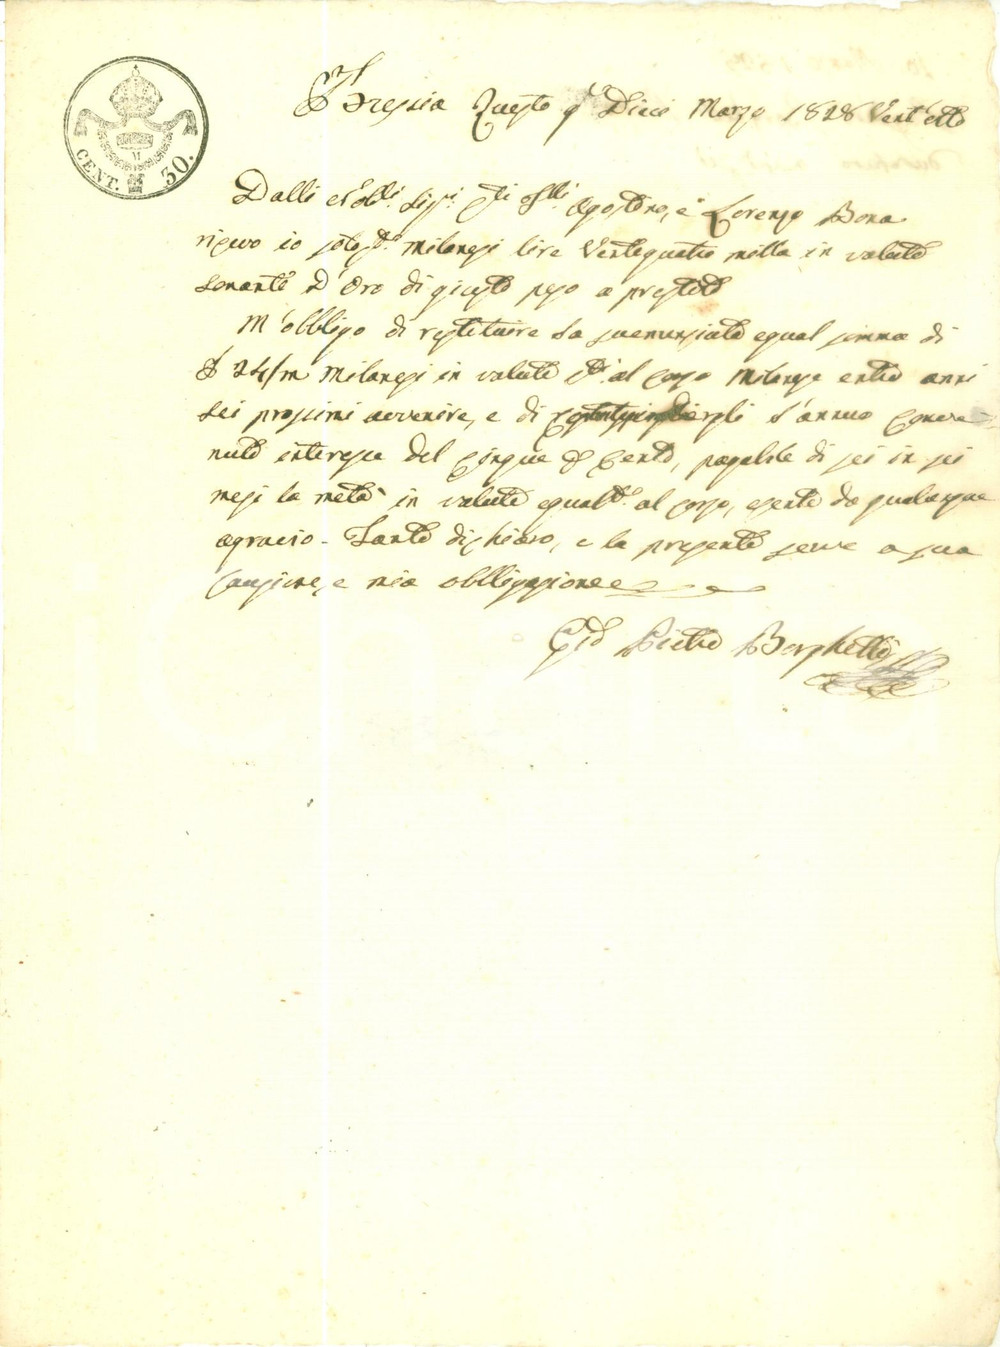 CENT. 30.
Brescia Questo gº Dieci Marzo 1828 Vent'otto
Dalli Sigri Agostino, e Lorenzo Bona
ricevo io sotoso Milanesi lire Ventiquatro milla in valuta
sonante d'Oro di giusto peso a prestito
M'obbligo di restituire la sunnunziata equal somma di
£ 24/m Milanesi in valuta al corso Milanese entro anni
sei prossimi avvenire, e di l'annuo conve-
nuto interesse del Cinque per Cento, pagabile di sei in sei
mesi la metà in valuta equal al corso, esente da qualunque
agravio - Tanto dichiaro, e la presente serve a sua
cauzione, e mia obbligazione
Pietro Borghetti